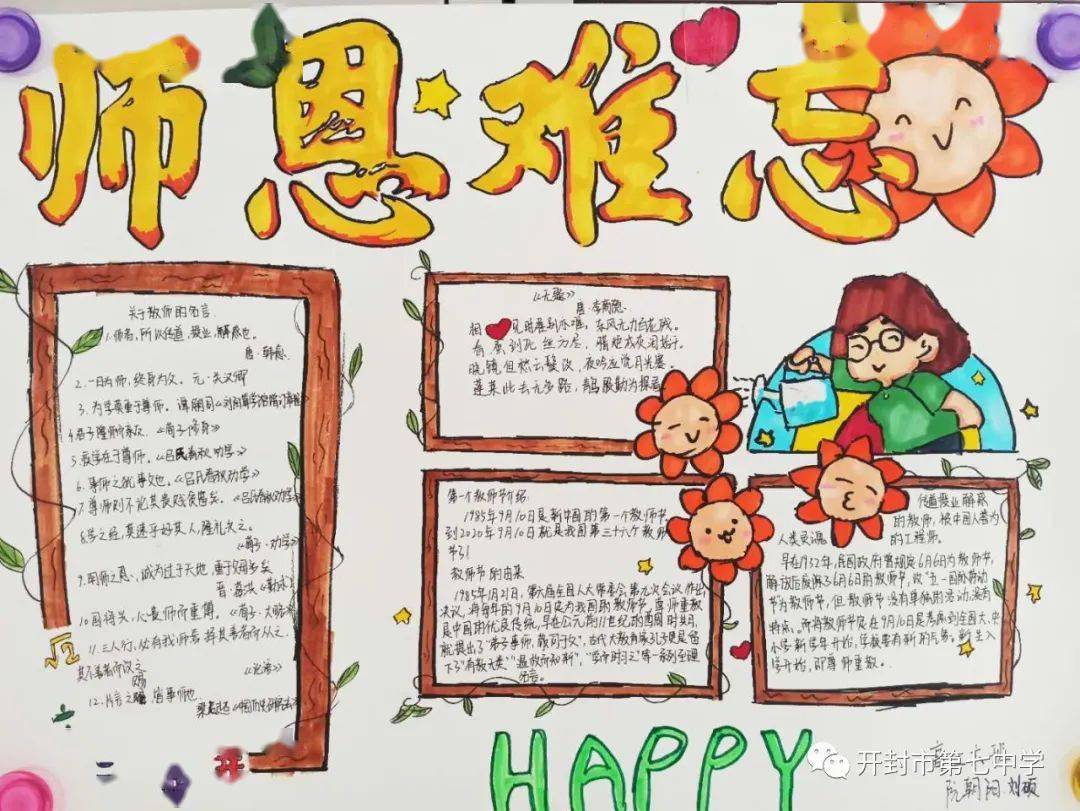 师恩难忘
关于教师的名言
1.师者,所以传道,授业,解惑也。
唐·韩愈
2.一日为师,终身为父。元·关汉卿
3.为学莫重于尊师。谭嗣同《浏阳算学馆
《荀子·修身》
5.疾学在于尊师。《吕氏春秋·劝学》
《吕氏春秋劝学》
7.尊师则不论其贵贱贫富矣。《吕氏春秋劝学》
8.学之经,莫速乎好其人,隆礼次之。
《荀子·劝学》
9.明师之恩,诚为过于天地,重于父母多矣
晋·葛洪《勤求》
10.国将兴,心贵师而重傅。《荀子·大略
11.三人行,必有我师焉,择其善者而从之,
其不善者而改之
《论语》
12.片言之赐,皆事师也。
梁启超
√2
÷
=
#
《无题》
唐·李商隐
相❤见时
东风无力百花残。
春蚕到死丝方尽,
晓镜但愁云鬓改,夜吟应觉月光寒
蓬莱此去无多路,
第一个教师节介绍:
1985年9月10日是新中国的第一个教师节
到2020年9月10日就是我国第三十六个教师
节了!
教师节的由来
1985年1月21日,第六届全国人大常委会第九次会议作出
决议,将每年的9月10日定为我国的教师节。尊师重教
是中国的优良传统,早在公元前11世纪的西周时期,
就提出了"弟子事师,敬同于父",古代大教育家孔子更是留
下了"有教无类""温故而知新","学而时习之"等一系列至理
名言。
传道授业解惑
的教师,被中国人誉为
人类灵魂
的工程师。
早在1932年,民国政府曾规定6月6日为教师节,
解放后废除了6月6日的教师节,改"五一国际劳动
节"为教师节,但教师节没有单独的活动,没有
特点。而将教师节定在9月10日是考虑到全国大、中
小学新学年开始,学校要有新的气象。新生入
学开始,即尊师重教。
HAPPY
开封市第七中学
阮朝阳 刘硕